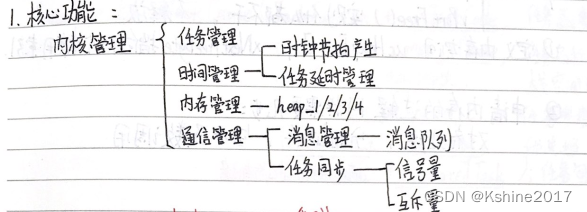 1. 核心功能：
内核管理
任务管理
时间管理
时钟节拍产生
任务延时管理
内存管理 — heap_1/2/3/4
通信管理
消息管理 — 消息队列
任务同步
信号量
互斥量
CSDN @Kshine2017